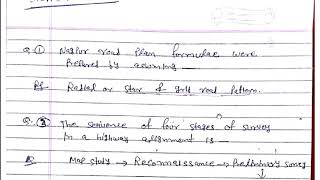 Q. ① Nagpur road plan formulae were
Prepared by assuming
Radial or star & grid road pattern.
Q. ② The sequence of four stages of survey
in a highway alignment is
Map study → Reconnaissance → Preliminary survey
↓